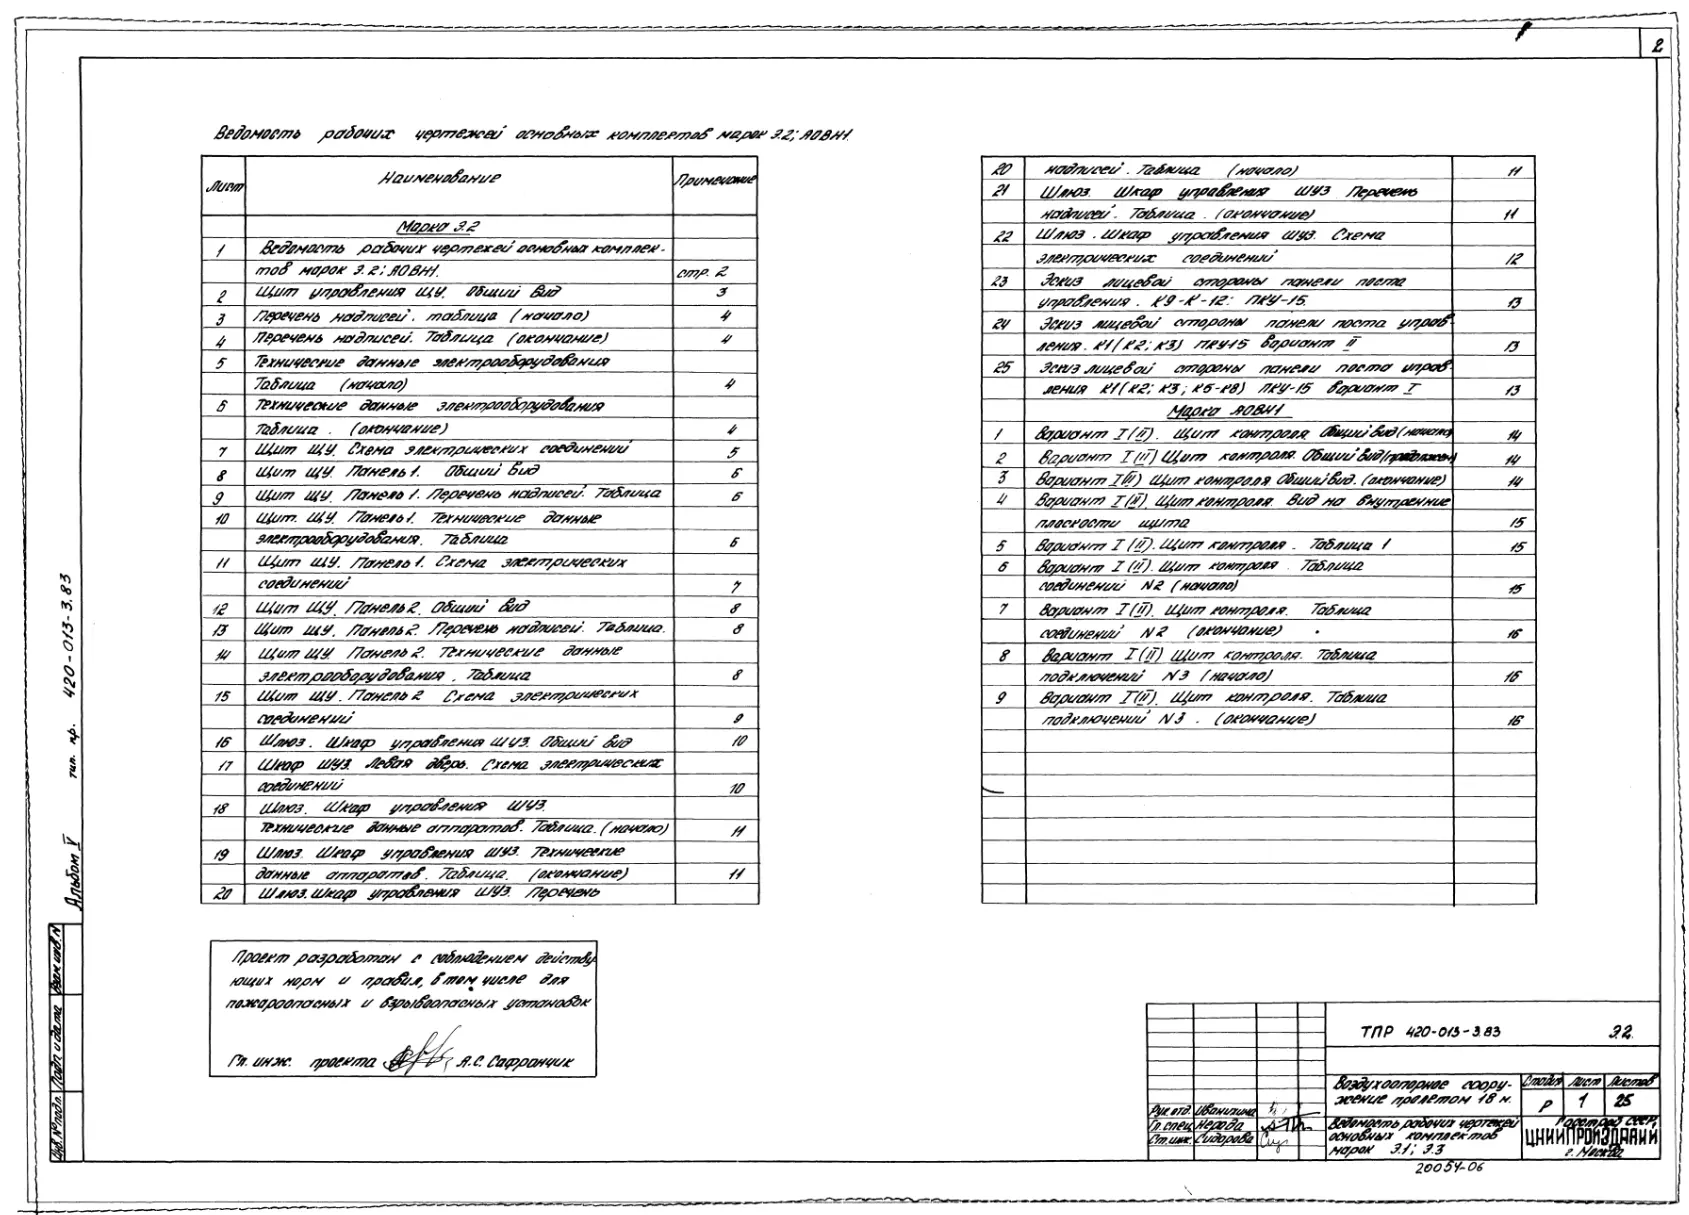 2
Ведомость рабочих чертежей основных комплектов марок Э.2; АОВН1
Лист Наименование Примечание
Марка Э.2
1 Ведомость рабочих чертежей основных комплек-
тов марок Э.2; АОВН1. стр. 2
2 Щит управления ЩУ. Общий вид 3
3 Перечень надписей. таблица (начало) 4
4 Перечень надписей. Таблица (окончание) 4
5 Технические данные электрооборудования
Таблица (начало) 4
6 Технические данные электрооборудования
Таблица. (окончание) 4
7 Щит ЩУ. Схема электрических соединений 5
8 Щит ЩУ. Панель 1. Общий вид 6
9 Щит ЩУ. Панель 1. Перечень надписей. Таблица 6
10 Щит. ЩУ. Панель 1. Технические данные
электрооборудования. Таблица 6
11 Щит ЩУ. Панель 1. Схема электрических
соединений 7
12 Щит ЩУ. Панель 2. Общий вид 8
13 Щит ЩУ. Панель 2. Перечень надписей. Таблица. 8
14 Щит ЩУ. Панель 2. Технические данные
электрооборудования. Таблица 8
15 Щит ЩУ. Панель 2 Схема электрических
соединений 9
16 Шлюз. Шкаф управления ШУЗ. Общий вид 10
17 Шкаф ШУЗ. Левая дверь. Схема электрических
соединений 10
18 Шлюз. Шкаф управления ШУЗ.
Технические данные аппаратов. Таблица. (начало) 11
19 Шлюз. Шкаф управления ШУЗ. Технические
данные аппаратов. Таблица. (окончание) 11
20 Шлюз. Шкаф управления ШУЗ. Перечень
20 надписей. Таблица (начало) 11
21 Шлюз. Шкаф управления ШУЗ Перечень
надписей. Таблица. (окончание) 11
22 Шлюз. Шкаф управления ШУЗ. Схема
электрических соединений 12
23 Эскиз лицевой стороны панели поста
управления. К9-К-12: ПКУ-15 13
24 Эскиз лицевой стороны панели поста управ-
ления. К1(К2; К3) ПКУ15 вариант II 13
25 Эскиз лицевой стороны панели поста управ-
ления К1(К2; К3; К6-К8) ПКУ-15 вариант I 13
Марка АОВН1
1 Вариант I(II). Щит контроля. Общий вид (начало) 14
2 Вариант I(II) Щит контроля. Общий вид (продолжен) 14
3 Вариант I(II) Щит контроля Общий вид. (окончание) 14
4 Вариант I(II). Щит контроля. Вид на внутренние
плоскости щита 15
5 Вариант I(II). Щит контроля. Таблица 1 15
6 Вариант I(II). Щит контроля. Таблица
соединений N2 (начало) 15
7 Вариант I(II). Щит контроля. Таблица
соединений N2 (окончание) 16
8 Вариант I(II) Щит контроля. Таблица
подключений N3 (начало) 16
9 Вариант I(II). Щит контроля. Таблица
подключений N3. (окончание) 16
Проект разработан с соблюдением действу-
ющих норм и правил, в том числе для
пожароопасных и взрывоопасных установок
Гл. инж. проекта А.С. Сафрончик
Альбом V тип. пр. 420-013-3.83
Инв. № подл. Подп. и дата Взам. инв. N
ТПР 420-013-3.83 Э.2.
Воздухоопорное соору-
жение пролетом 18 м.
Стадия Лист Листов
Р 1 25
Рук. отд. Иванихина
Гл. спец. Нерода
Ст. инж. Сидорова
Ведомость рабочих чертежей
основных комплектов
марок Э.1; Э.3
Госстрой СССР
ЦНИИПРОМЗДАНИЙ
г. Москва
20054-06